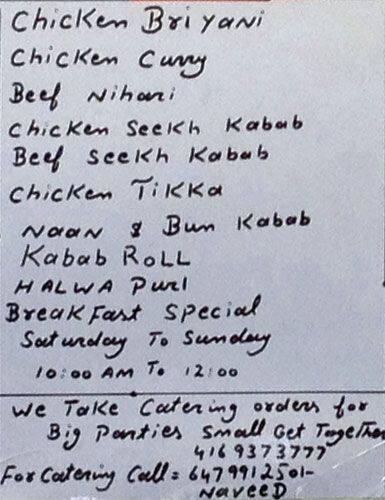 Chicken Briyani
Chicken Curry
Beef Nihari
Chicken Seekh Kabab
Beef Seekh Kabab
Chicken Tikka
Naan & Bun Kabab
Kabab Roll
HALWA Puri
BreakFast Special
Saturday To Sunday
10:00 AM To 12:00
We Take Catering orders for
Big Parties Small Get Together
4169373777
For Catering Call= 6479912501-
NaveeD